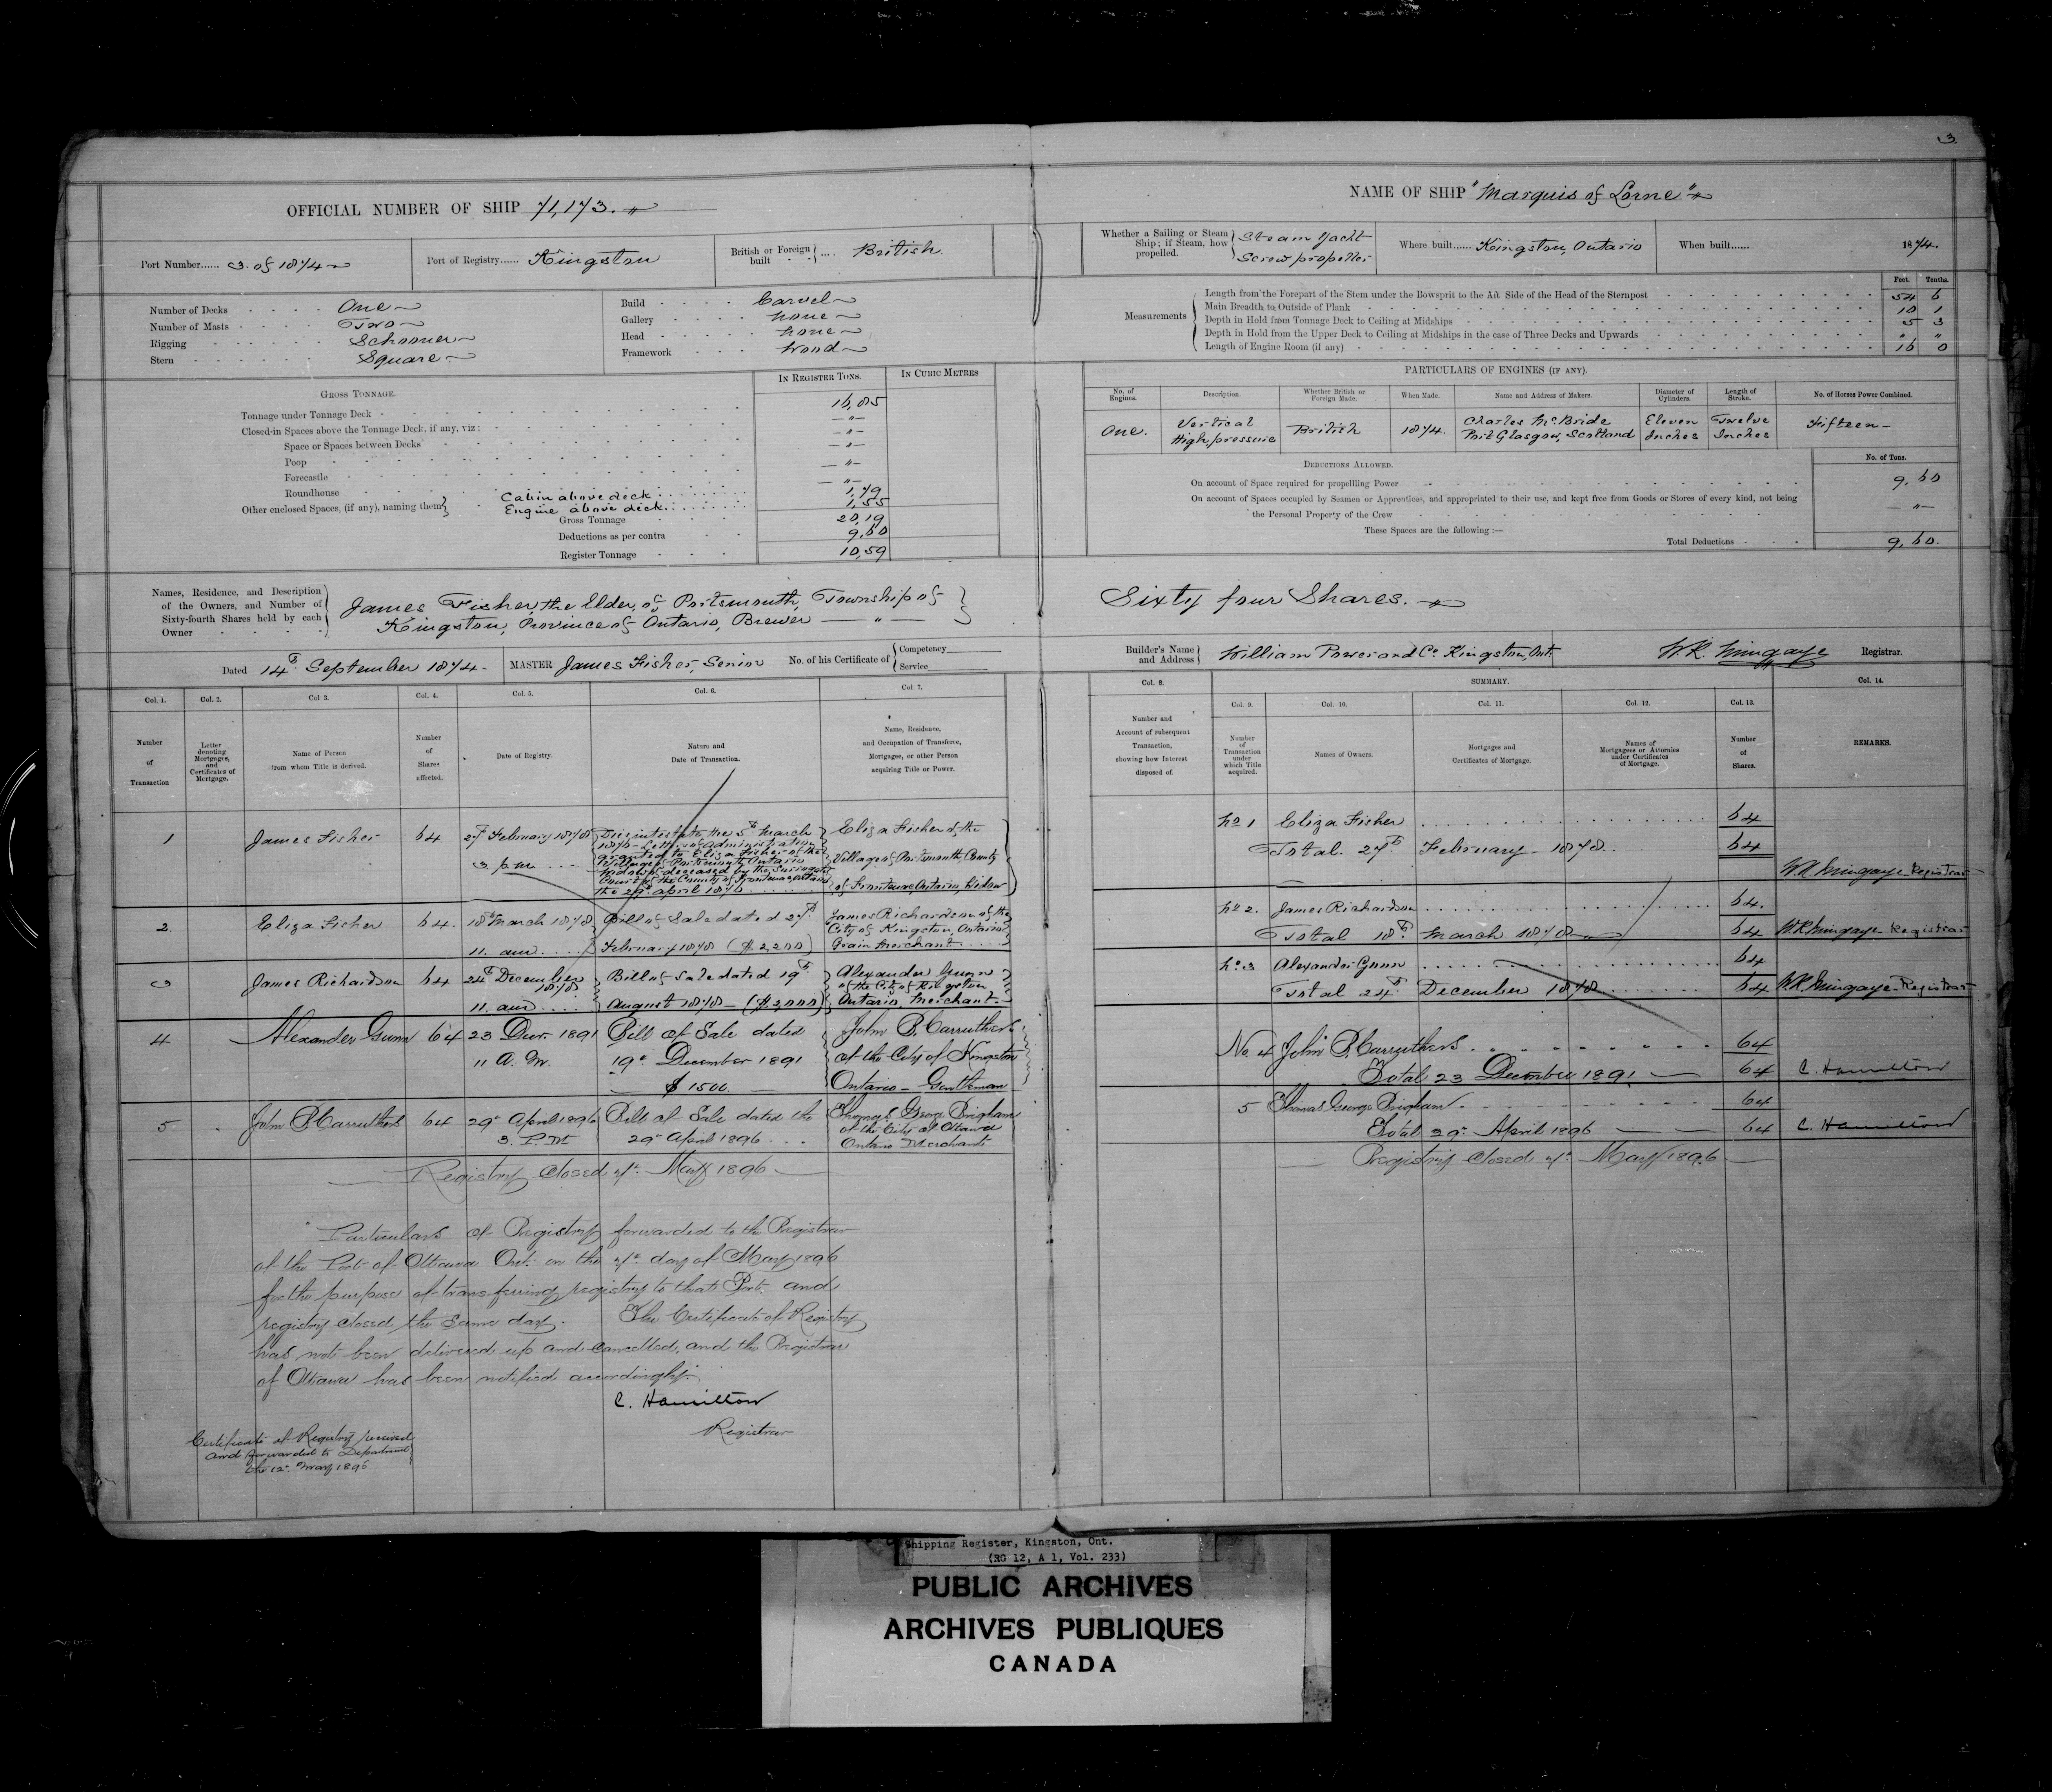 3
OFFICIAL NUMBER OF SHIP 71,173. "
Port Number...... 3. of 1874
Port of Registry...... Kingston
British or Foreign built } .... British.
Number of Decks One
Number of Masts Two
Rigging Schooner
Stern Square
Build Carvel
Gallery none
Head none
Framework Wood
GROSS TONNAGE.
IN REGISTER TONS.
IN CUBIC METRES
Tonnage under Tonnage Deck 16,85
Closed-in Spaces above the Tonnage Deck, if any, viz: — " —
Space or Spaces between Decks — " —
Poop — " —
Forecastle — " —
Roundhouse — " —
Other enclosed Spaces, (if any), naming them }
Cabin above deck 1,79
Engine above deck 1,55
Gross Tonnage 20,19
Deductions as per contra 9,60
Register Tonnage 10,59
Names, Residence, and Description of the Owners, and Number of Sixty-fourth Shares held by each Owner
James Fisher, the Elder, of Portsmouth, Township of
Kingston, Province of Ontario, Brewer — " —
Dated 14th September 1874
MASTER James Fisher, Senior
No. of his Certificate of { Competency
Service
Col. 1. Col. 2. Col 3. Col. 4. Col. 5. Col. 6. Col 7.
Number of Transaction
Letter denoting Mortgages, and Certificates of Mortgage.
Name of Person from whom Title is derived.
Number of Shares affected.
Date of Registry.
Nature and Date of Transaction.
Name, Residence, and Occupation of Transferee, Mortgagee, or other Person acquiring Title or Power.
1 James Fisher 64 27th February 1878
3. p.m.
Died intestate, the 5th March
1876 - Letters of Administration
granted to Eliza Fisher of the
Village of Portsmouth Ontario
Widow of deceased by the Surrogate
Court of the County of Frontenac Ontario
the 29th April 1876
Eliza Fisher of the
Village of Portsmouth, County
of Frontenac, Ontario, Widow
2. Eliza Fisher 64. 18th March 1878
11. am
Bill of Sale dated 27th
February 1878 ($2200)
James Richardson of the
City of Kingston, Ontario
Grain Merchant
3 James Richardson 64 24th December
1878
11. am
Bill of Sale dated 19th
August 1878 - ($2,000)
Alexander Gunn
of the City of Kingston
Ontario, Merchant
4 Alexander Gunn 64 23 Decr. 1891
11 A. M.
Bill of Sale dated
19th December 1891
$1500
John B. Carruthers
of the City of Kingston
Ontario - Gentleman
5 John B. Carruthers 64 29th April 1896
3. P.M
Bill of Sale dated the
29th April 1896
Thomas George Brigham
of the City of Ottawa
Ontario Merchant
Registry Closed 7th May 1896
Particulars of Registry forwarded to the Registrar
of the Port of Ottawa Ont. on the 7th day of May 1896
for the purpose of transferring registry to that Port. and
registry closed the same day. The Certificate of Registry
has not been delivered up and cancelled, and the Registrar
of Ottawa has been notified accordingly.
C. Hamilton
Registrar
Certificate of Registry received
and forwarded to Department
the 12th May 1896
NAME OF SHIP "Marquis of Lorne" "
Whether a Sailing or Steam Ship; if Steam, how propelled. { Steam Yacht
Screw propeller
Where built...... Kingston, Ontario
When built...... 1874.
Measurements
Feet. Tenths.
Length from the Forepart of the Stem under the Bowsprit to the Aft Side of the Head of the Sternpost 54 6
Main Breadth to Outside of Plank 10 1
Depth in Hold from Tonnage Deck to Ceiling at Midships 5 3
Depth in Hold from the Upper Deck to Ceiling at Midships in the case of Three Decks and Upwards " "
Length of Engine Room (if any) 16 0
PARTICULARS OF ENGINES (IF ANY).
No. of Engines. Description. Whether British or Foreign Made. When Made. Name and Address of Makers. Diameter of Cylinders. Length of Stroke. No. of Horses Power Combined.
One. Vertical High pressure British 1874. Charles McBride Port Glasgow, Scotland Eleven Inches Twelve Inches Fifteen -
DEDUCTIONS ALLOWED.
No. of Tons.
On account of Space required for propellling Power 9,60
On account of Spaces occupied by Seamen or Apprentices, and appropriated to their use, and kept free from Goods or Stores of every kind, not being
the Personal Property of the Crew — " —
These Spaces are the following :—
Total Deductions 9,60.
Sixty four Shares. "
Builder's Name and Address } William Power and Co. Kingston, Ont.
W.R. Mingaye Registrar.
Col. 8. SUMMARY. Col. 14.
Col. 9. Col. 10. Col. 11. Col. 12. Col. 13.
Number and Account of subsequent Transaction, showing how Interest disposed of.
Number of Transaction under which Title acquired.
Names of Owners.
Mortgages and Certificates of Mortgage.
Names of Mortgagees or Attornies under Certificates of Mortgage.
Number of Shares.
REMARKS.
No 1 Eliza Fisher 64
Total. 27th February - 1878 64
W.R. Mingaye - Registrar
No 2. James Richardson 64.
Total 18th March 1878 64 W.R. Mingaye - Registrar
No. 3 Alexander Gunn 64
Total 24th December 1878 64 W.R. Mingaye - Registrar
No. 4 John B. Carruthers 64
Total 23 December 1891 64 C. Hamilton
5 Thomas George Brigham 64
Total 29th April 1896 64 C. Hamilton
Registry Closed 7th May 1896
Shipping Register, Kingston, Ont.
(RG 12, A 1, Vol. 233)
PUBLIC ARCHIVES
ARCHIVES PUBLIQUES
CANADA